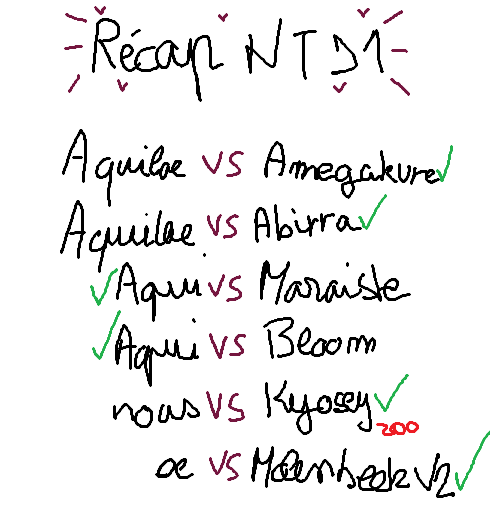 Récap NTD1
Aquilae VS Amegakure
Aquilae VS Abirra
Aqui VS Maraiste
Aqui VS Bloom
nous VS Kyosey
200
ae VS Molenbeek V2